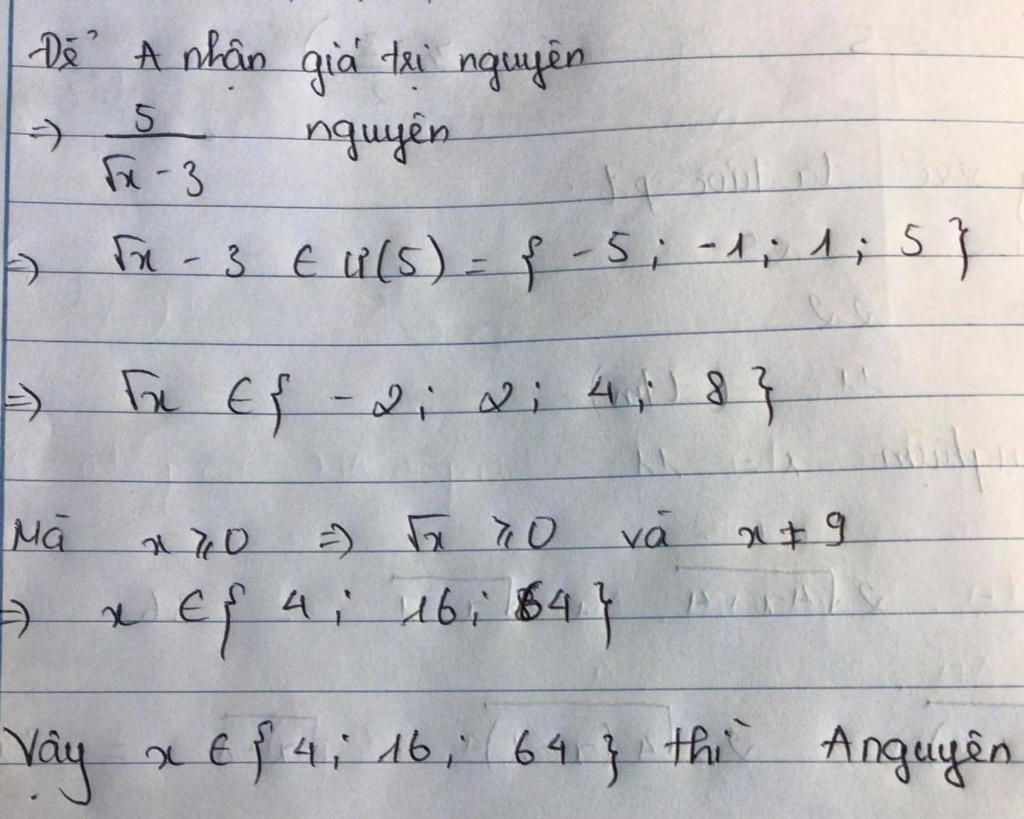 Để A nhận giá trị nguyên
=> 5/(√x - 3) nguyên
=> √x - 3 ∈ Ư(5) = { -5 ; -1 ; 1 ; 5 }
=> √x ∈ { -2 ; 2 ; 4 ; 8 }
Mà x ⩾ 0 => √x ⩾ 0 và x ≠ 9
=> x ∈ { 4 ; 16 ; 64 }
Vậy x ∈ { 4 ; 16 ; 64 } thì A nguyên